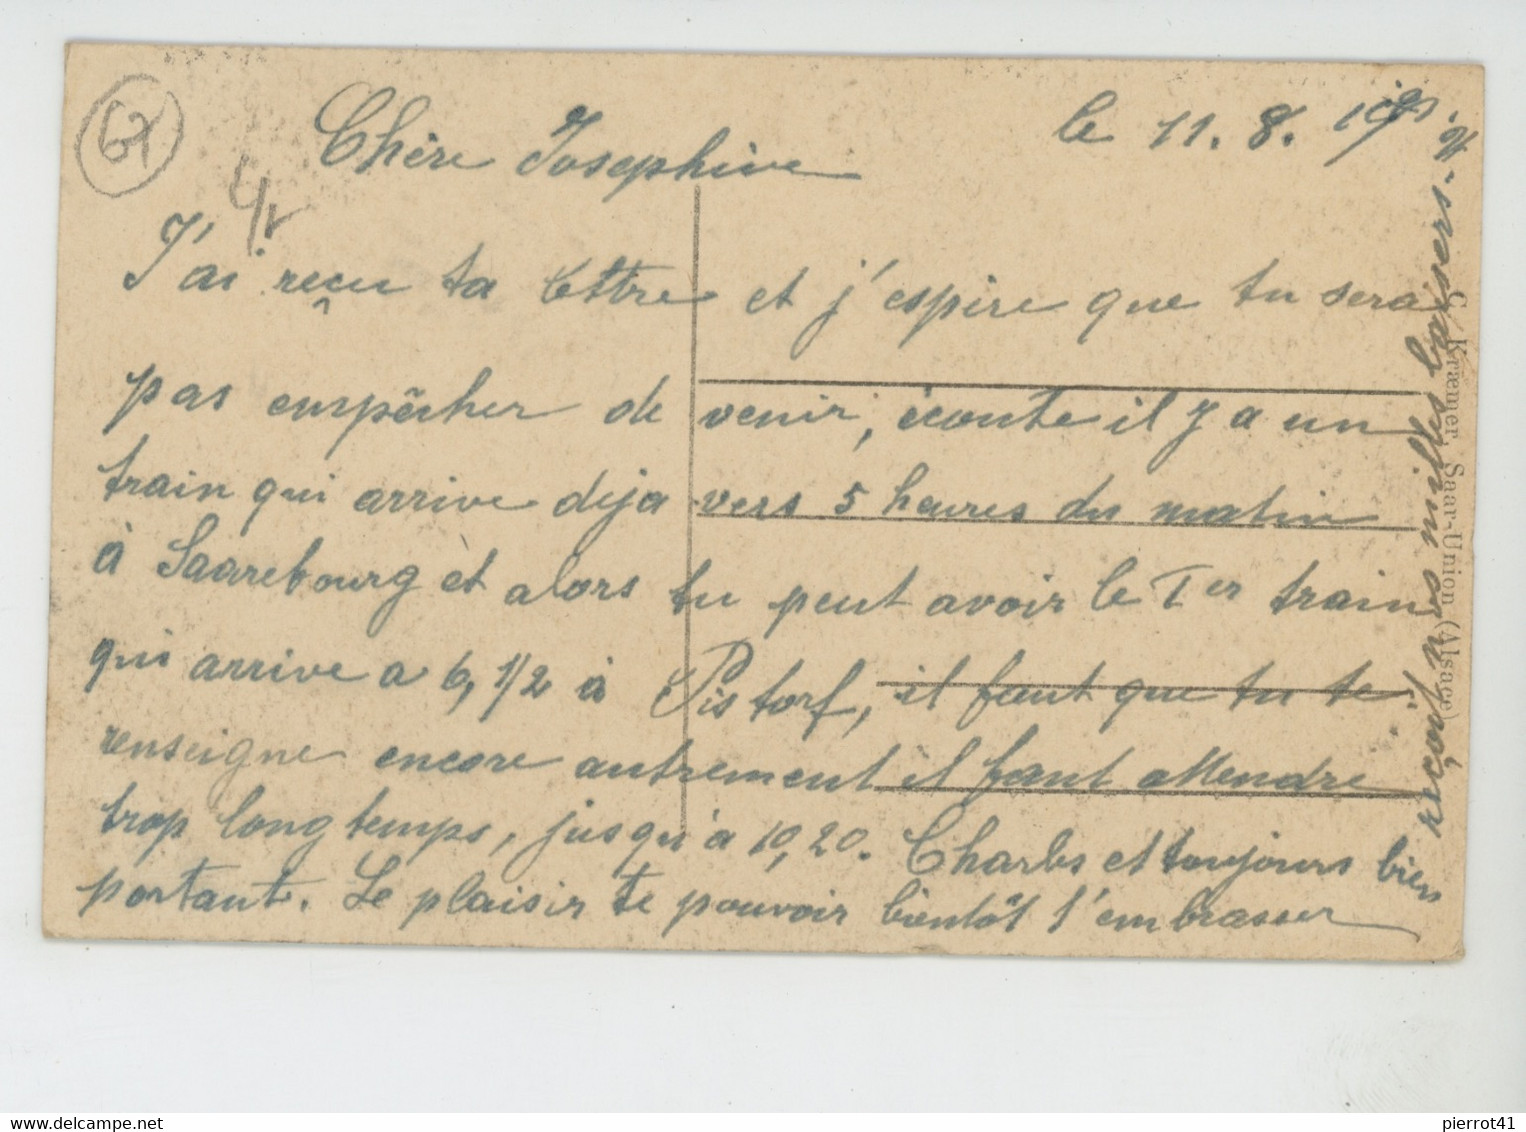 67
le 11. 8.
Chère Josephine
J'ai reçu ta lettre et j'espire que tu sera
pas empêcher de venir, écoute il y a un
train qui arrive deja vers 5 heures du matin
à Saarebourg et alors tu peut avoir le Ier train
qui arrive a 6, 1/2 à Pistorf, il faut que tu te
renseigne encore autrement il faut attendre
trop longtemps, jusqu'à 10,20. Charles et toujours bien
portant. Le plaisir te pouvoir bientôt t'embrasser
reçois mes milles baisers.
C. Kræmer, Saar-Union (Alsace)
pierrot41
delcampe.net